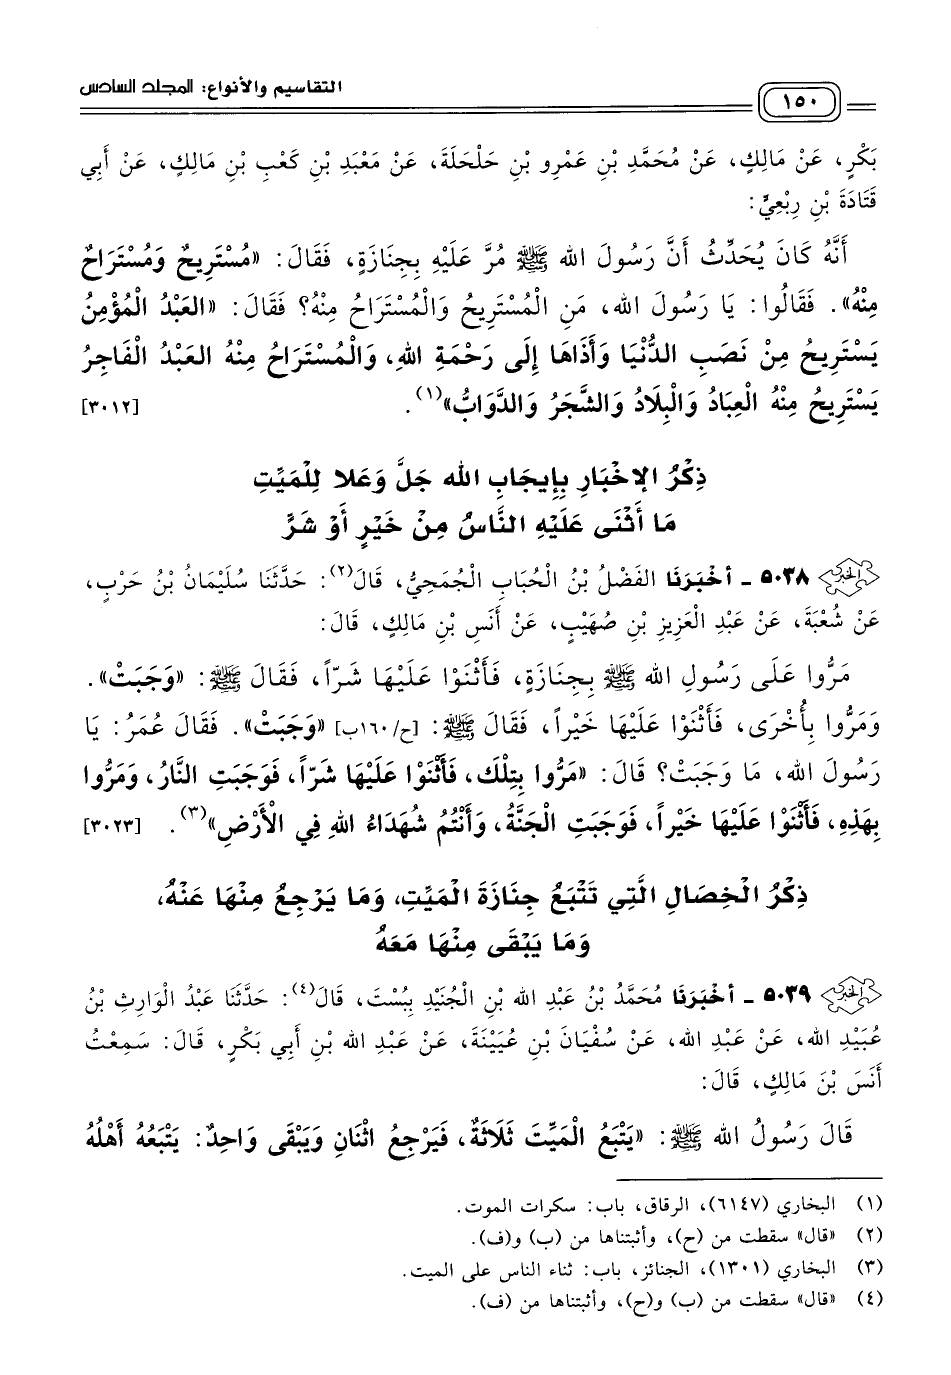 ١٥٠
التقاسيم والأنواع: المجلد السادس
بَكْرٍ، عَنْ مَالِكٍ، عَنْ مُحَمَّدِ بْنِ عَمْرِو بْنِ حَلْحَلَةَ، عَنْ مَعْبَدِ بْنِ كَعْبِ بْنِ مَالِكٍ، عَنْ أَبِي
قَتَادَةَ بْنِ رِبْعِيٍّ:
أَنَّهُ كَانَ يُحَدِّثُ أَنَّ رَسُولَ اللهِ ﷺ مُرَّ عَلَيْهِ بِجِنَازَةٍ، فَقَالَ: «مُسْتَرِيحٌ وَمُسْتَرَاحٌ
مِنْهُ». فَقَالُوا: يَا رَسُولَ اللهِ، مَنِ الْمُسْتَرِيحُ وَالْمُسْتَرَاحُ مِنْهُ؟ فَقَالَ: «العَبْدُ الْمُؤْمِنُ
يَسْتَرِيحُ مِنْ نَصَبِ الدُّنْيَا وَأَذَاهَا إِلَى رَحْمَةِ اللهِ، وَالْمُسْتَرَاحُ مِنْهُ العَبْدُ الْفَاجِرُ
يَسْتَرِيحُ مِنْهُ الْعِبَادُ وَالْبِلَادُ وَالشَّجَرُ وَالدَّوَابُّ»(١). [٣٠١٢]
ذِكْرُ الإخْبَارِ بِإِيجَابِ اللهِ جَلَّ وَعَلا لِلْمَيِّتِ
مَا أَثْنَى عَلَيْهِ النَّاسُ مِنْ خَيْرٍ أَوْ شَرٍّ
٥٠٣٨ - أخْبَرَنَا الفَضْلُ بْنُ الْحُبَابِ الْجُمَحِيُّ، قَالَ(٢): حَدَّثَنَا سُلَيْمَانُ بْنُ حَرْبٍ،
عَنْ شُعْبَةَ، عَنْ عَبْدِ الْعَزِيزِ بْنِ صُهَيْبٍ، عَنْ أَنَسِ بْنِ مَالِكٍ، قَالَ:
مَرُّوا عَلَى رَسُولِ اللهِ ﷺ بِجِنَازَةٍ، فَأَثْنَوْا عَلَيْهَا شَرّاً، فَقَالَ ﷺ: «وَجَبَتْ».
وَمَرُّوا بِأُخْرَى، فَأَثْنَوْا عَلَيْهَا خَيْراً، فَقَالَ ﷺ: [ح/١٦٠ب] «وَجَبَتْ». فَقَالَ عُمَرُ: يَا
رَسُولَ اللهِ، مَا وَجَبَتْ؟ قَالَ: «مَرُّوا بِتِلْكَ، فَأَثْنَوْا عَلَيْهَا شَرّاً، فَوَجَبَتِ النَّارُ، وَمَرُّوا
بِهَذِهِ، فَأَثْنَوْا عَلَيْهَا خَيْراً، فَوَجَبَتِ الْجَنَّةُ، وَأَنْتُمْ شُهَدَاءُ اللهِ فِي الأَرْضِ»(٣). [٣٠٢٣]
ذِكْرُ الْخِصَالِ الَّتِي تَتْبَعُ جِنَازَةَ الْمَيِّتِ، وَمَا يَرْجِعُ مِنْهَا عَنْهُ،
وَمَا يَبْقَى مِنْهَا مَعَهُ
٥٠٣٩ - أخْبَرَنَا مُحَمَّدُ بْنُ عَبْدِ اللهِ بْنِ الْجُنَيْدِ بِبُسْتَ، قَالَ(٤): حَدَّثَنَا عَبْدُ الْوَارِثِ بْنُ
عُبَيْدِ اللهِ، عَنْ عَبْدِ اللهِ، عَنْ سُفْيَانَ بْنِ عُيَيْنَةَ، عَنْ عَبْدِ اللهِ بْنِ أَبِي بَكْرٍ، قَالَ: سَمِعْتُ
أَنَسَ بْنَ مَالِكٍ، قَالَ:
قَالَ رَسُولُ اللهِ ﷺ: «يَتْبَعُ الْمَيِّتَ ثَلَاثَةٌ، فَيَرْجِعُ اثْنَانِ وَيَبْقَى وَاحِدٌ: يَتْبَعُهُ أَهْلُهُ
(١) البخاري (٦١٤٧)، الرقاق، باب: سكرات الموت.
(٢) «قال» سقطت من (ح)، وأثبتناها من (ب) و(ف).
(٣) البخاري (١٣٠١)، الجنائز، باب: ثناء الناس على الميت.
(٤) «قال» سقطت من (ب) و(ح)، وأثبتناها من (ف).